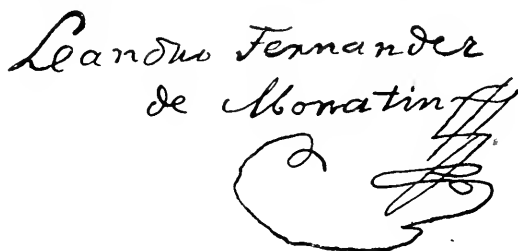 Leandro Fernandez
de Moratin